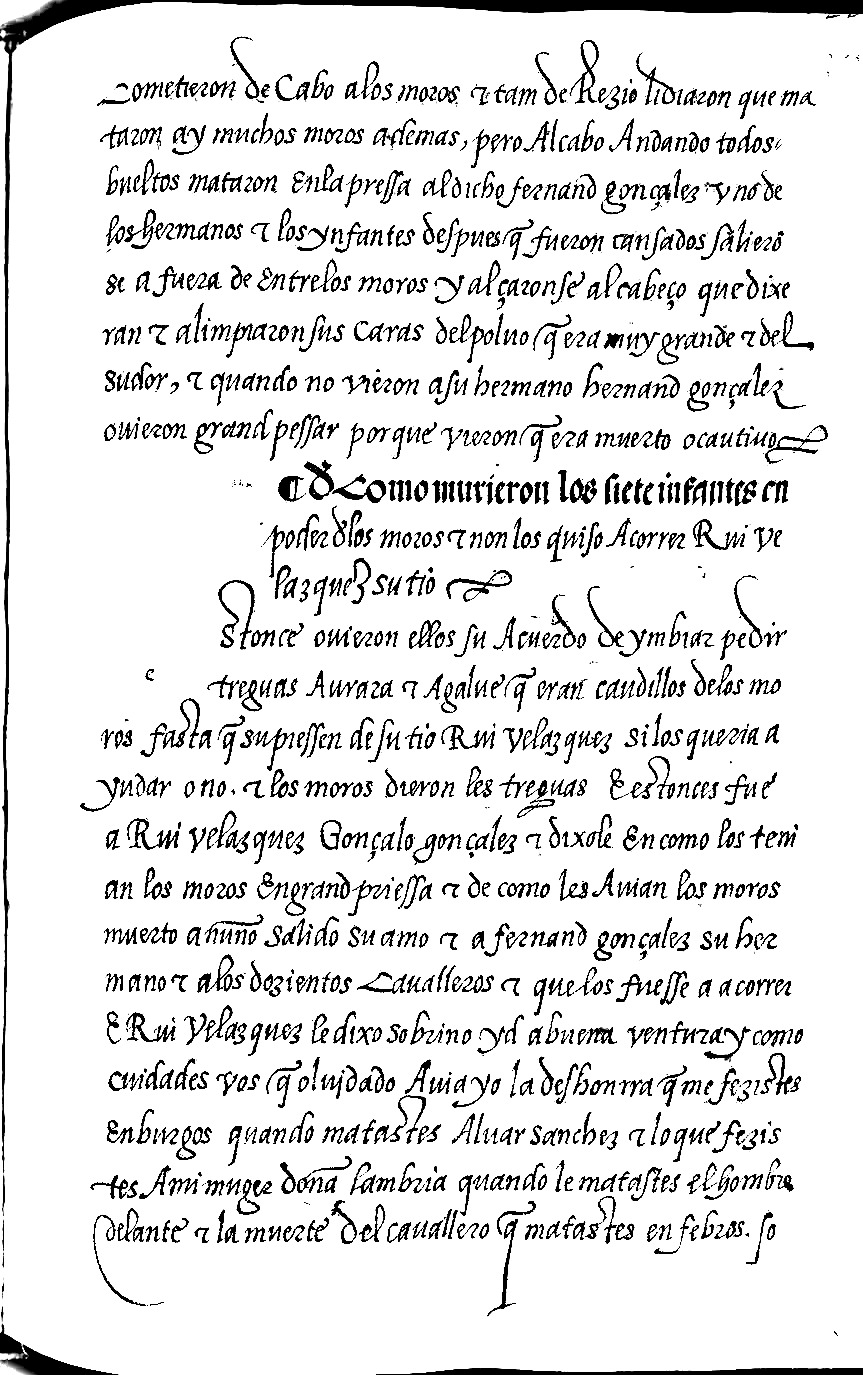 Cometieron de Cabo alos moros τ tam de Rezio lidiaron que ma
taron ay muchos moros ademas, pero Alcabo Andando todos
bueltos mataron Enla pressa aldicho fernand̃ gonçalez vno de
los hermanos τ los ynfantes despues q̃ fueron cansados salierõ
se a fuera de Entrelos moros y alçaronse alcabeço que dixe
ran τ alimpiaron sus Caras del poluo q̃ era muy grande τ del
sudor, τ quando no vieron asu hermano hernand̃ gonçalez
ovieron grand pessar porque vieron q̃ era muerto o cautivo
¶ đ Como murieron los siete infantes en
poder đlos moros τ non los quiso Acorrer Rui ve
lazquez su tio
Estonce ovieron ellos su Acuerdo de ymbiar pedir
e
treguas A urara τ Agalue q̃ eran caudillos delos mo
ros fasta q̃ supiessen de su tio Rui velazquez silos queria a
yudar o no. τ los moros dieron les treguas E estonces fue
a Rui velazquez Gonçalo gonçalez τ dixole En como los teni
an los moros En grand priessa τ de como les Avian los moros
muerto a nuño salido su amo τ a fernand gonçalez su her
mano τ alos dozientos Cavalleros τ que los fuesse a acorrer
E Rui Velazquez le dixo sobrino yd abuena ventura y como
cuidades vos q̃ olvidado Avia yo la deshonrra q̃ me fezistes
En burgos quando matastes Alvar sanchez τ lo que fezis
tes Ami muger doña lambria quando le matastes el hombre
delante τ la muerte del cavallero q̃ matastes en febros. so